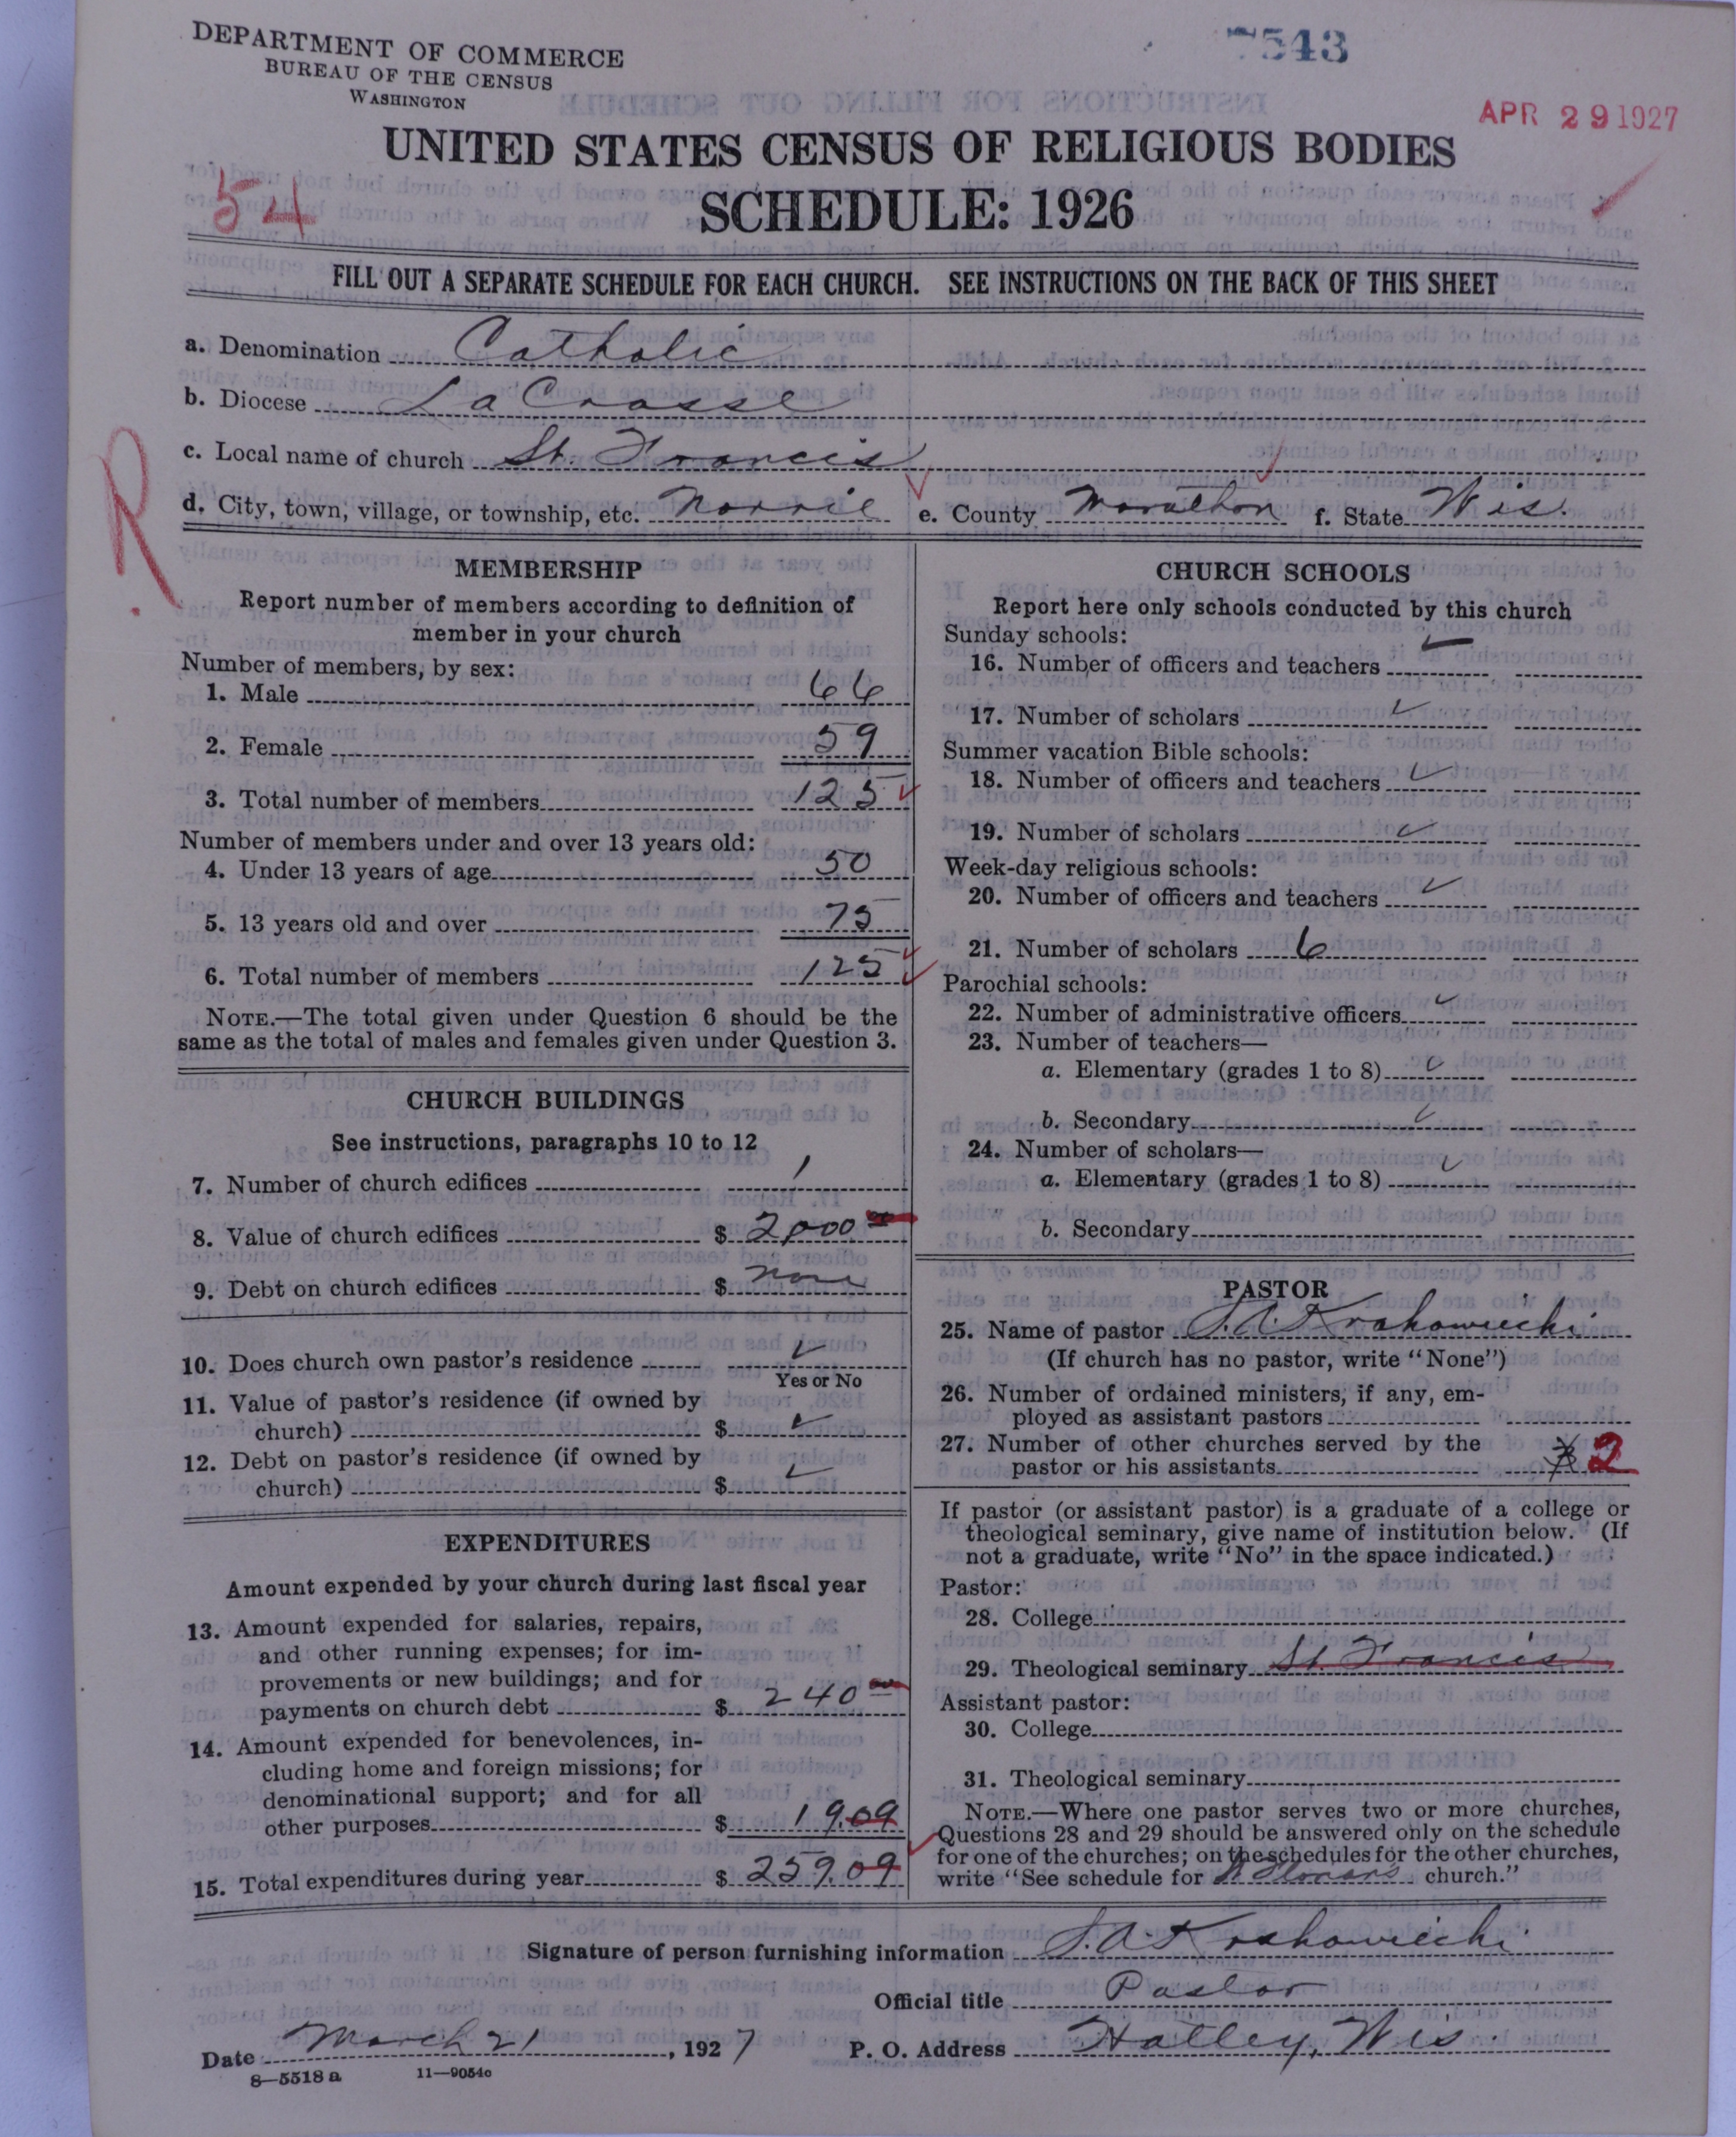 DEPARTMENT OF COMMERCE
BUREAU OF THE CENSUS
WASHINGTON
7543
APR 29 1927
UNITED STATES CENSUS OF RELIGIOUS BODIES
SCHEDULE: 1926
54
FILL OUT A SEPARATE SCHEDULE FOR EACH CHURCH. SEE INSTRUCTIONS ON THE BACK OF THIS SHEET
a. Denomination Catholic
b. Diocese La Crosse
c. Local name of church St. Francis
d. City, town, village, or township, etc. Norrie e. County Marathon f. State Wis.
R
MEMBERSHIP
Report number of members according to definition of
member in your church
Number of members, by sex:
1. Male 66
2. Female 59
3. Total number of members 125
Number of members under and over 13 years old:
4. Under 13 years of age 50
5. 13 years old and over 75
6. Total number of members 125
NOTE.—The total given under Question 6 should be the
same as the total of males and females given under Question 3.
CHURCH BUILDINGS
See instructions, paragraphs 10 to 12
7. Number of church edifices 1
8. Value of church edifices $ 2,000 00
9. Debt on church edifices $ none
10. Does church own pastor's residence ✓
Yes or No
11. Value of pastor's residence (if owned by
church) $ ✓
12. Debt on pastor's residence (if owned by
church) $ ✓
EXPENDITURES
Amount expended by your church during last fiscal year
13. Amount expended for salaries, repairs,
and other running expenses; for im-
provements or new buildings; and for
payments on church debt $ 240 00
14. Amount expended for benevolences, in-
cluding home and foreign missions; for
denominational support; and for all
other purposes $ 19.09
15. Total expenditures during year $ 259.09
CHURCH SCHOOLS
Report here only schools conducted by this church
Sunday schools:
16. Number of officers and teachers ✓
17. Number of scholars ✓
Summer vacation Bible schools:
18. Number of officers and teachers ✓
19. Number of scholars ✓
Week-day religious schools:
20. Number of officers and teachers ✓
21. Number of scholars 6
Parochial schools:
22. Number of administrative officers ✓
23. Number of teachers—
a. Elementary (grades 1 to 8) ✓
b. Secondary ✓
24. Number of scholars—
a. Elementary (grades 1 to 8) ✓
b. Secondary
PASTOR
25. Name of pastor S.A. Krakowiecki
(If church has no pastor, write "None")
26. Number of ordained ministers, if any, em-
ployed as assistant pastors
27. Number of other churches served by the
pastor or his assistants 2
If pastor (or assistant pastor) is a graduate of a college or
theological seminary, give name of institution below. (If
not a graduate, write "No" in the space indicated.)
Pastor:
28. College
29. Theological seminary St. Francis
Assistant pastor:
30. College
31. Theological seminary
NOTE.—Where one pastor serves two or more churches,
Questions 28 and 29 should be answered only on the schedule
for one of the churches; on the schedules for the other churches,
write "See schedule for church."
Signature of person furnishing information S.A. Krakowiecki
Official title Pastor
Date March 21, 1927 P. O. Address Hatley, Wis.
8—5518 a 11—9054c